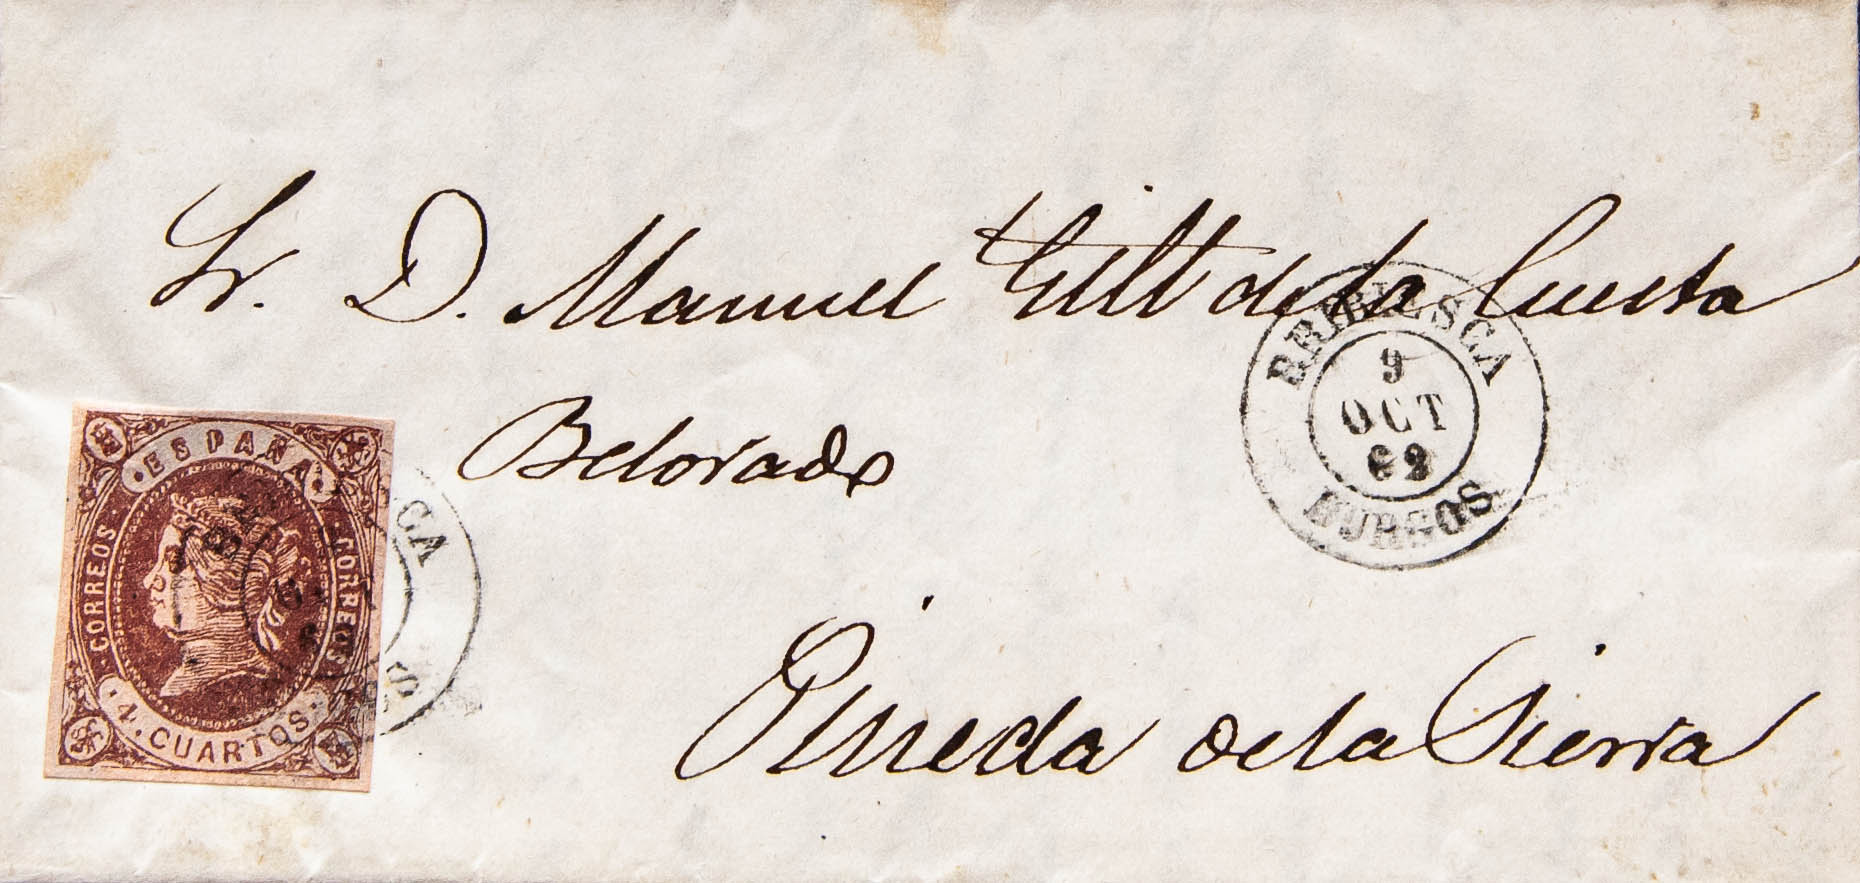 Sr. D. Manuel Gil de la Cuesta
Belorado
Pineda de la Sierra
BRIBIESCA
9
OCT
62
BURGOS
ESPAÑA
CORREOS
CORREOS
4. CUARTOS
CA
S